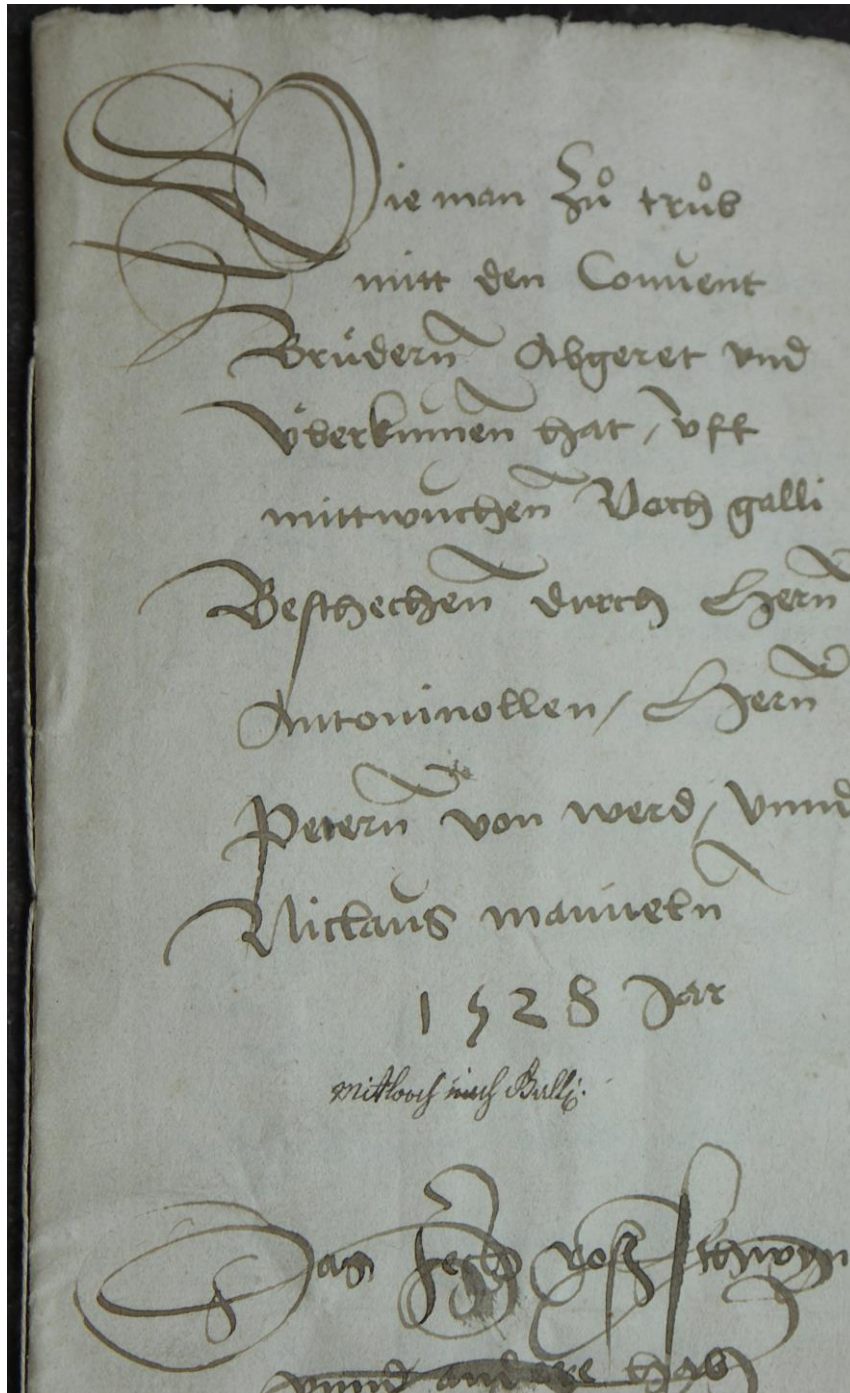 Wie man zů trůb
mitt den Conuent
Brüdern Abgeret vnd
Vberkumen hat / vff
mittwuchen Noch galli
Beschechen durch Hern
Antoni nollen / Hern
Petern von werd / Vnnd
Niclaus manueln
1528 Jar
Mitwoch nach Galli.
Das fech ross schwyn
vnnd andere hab